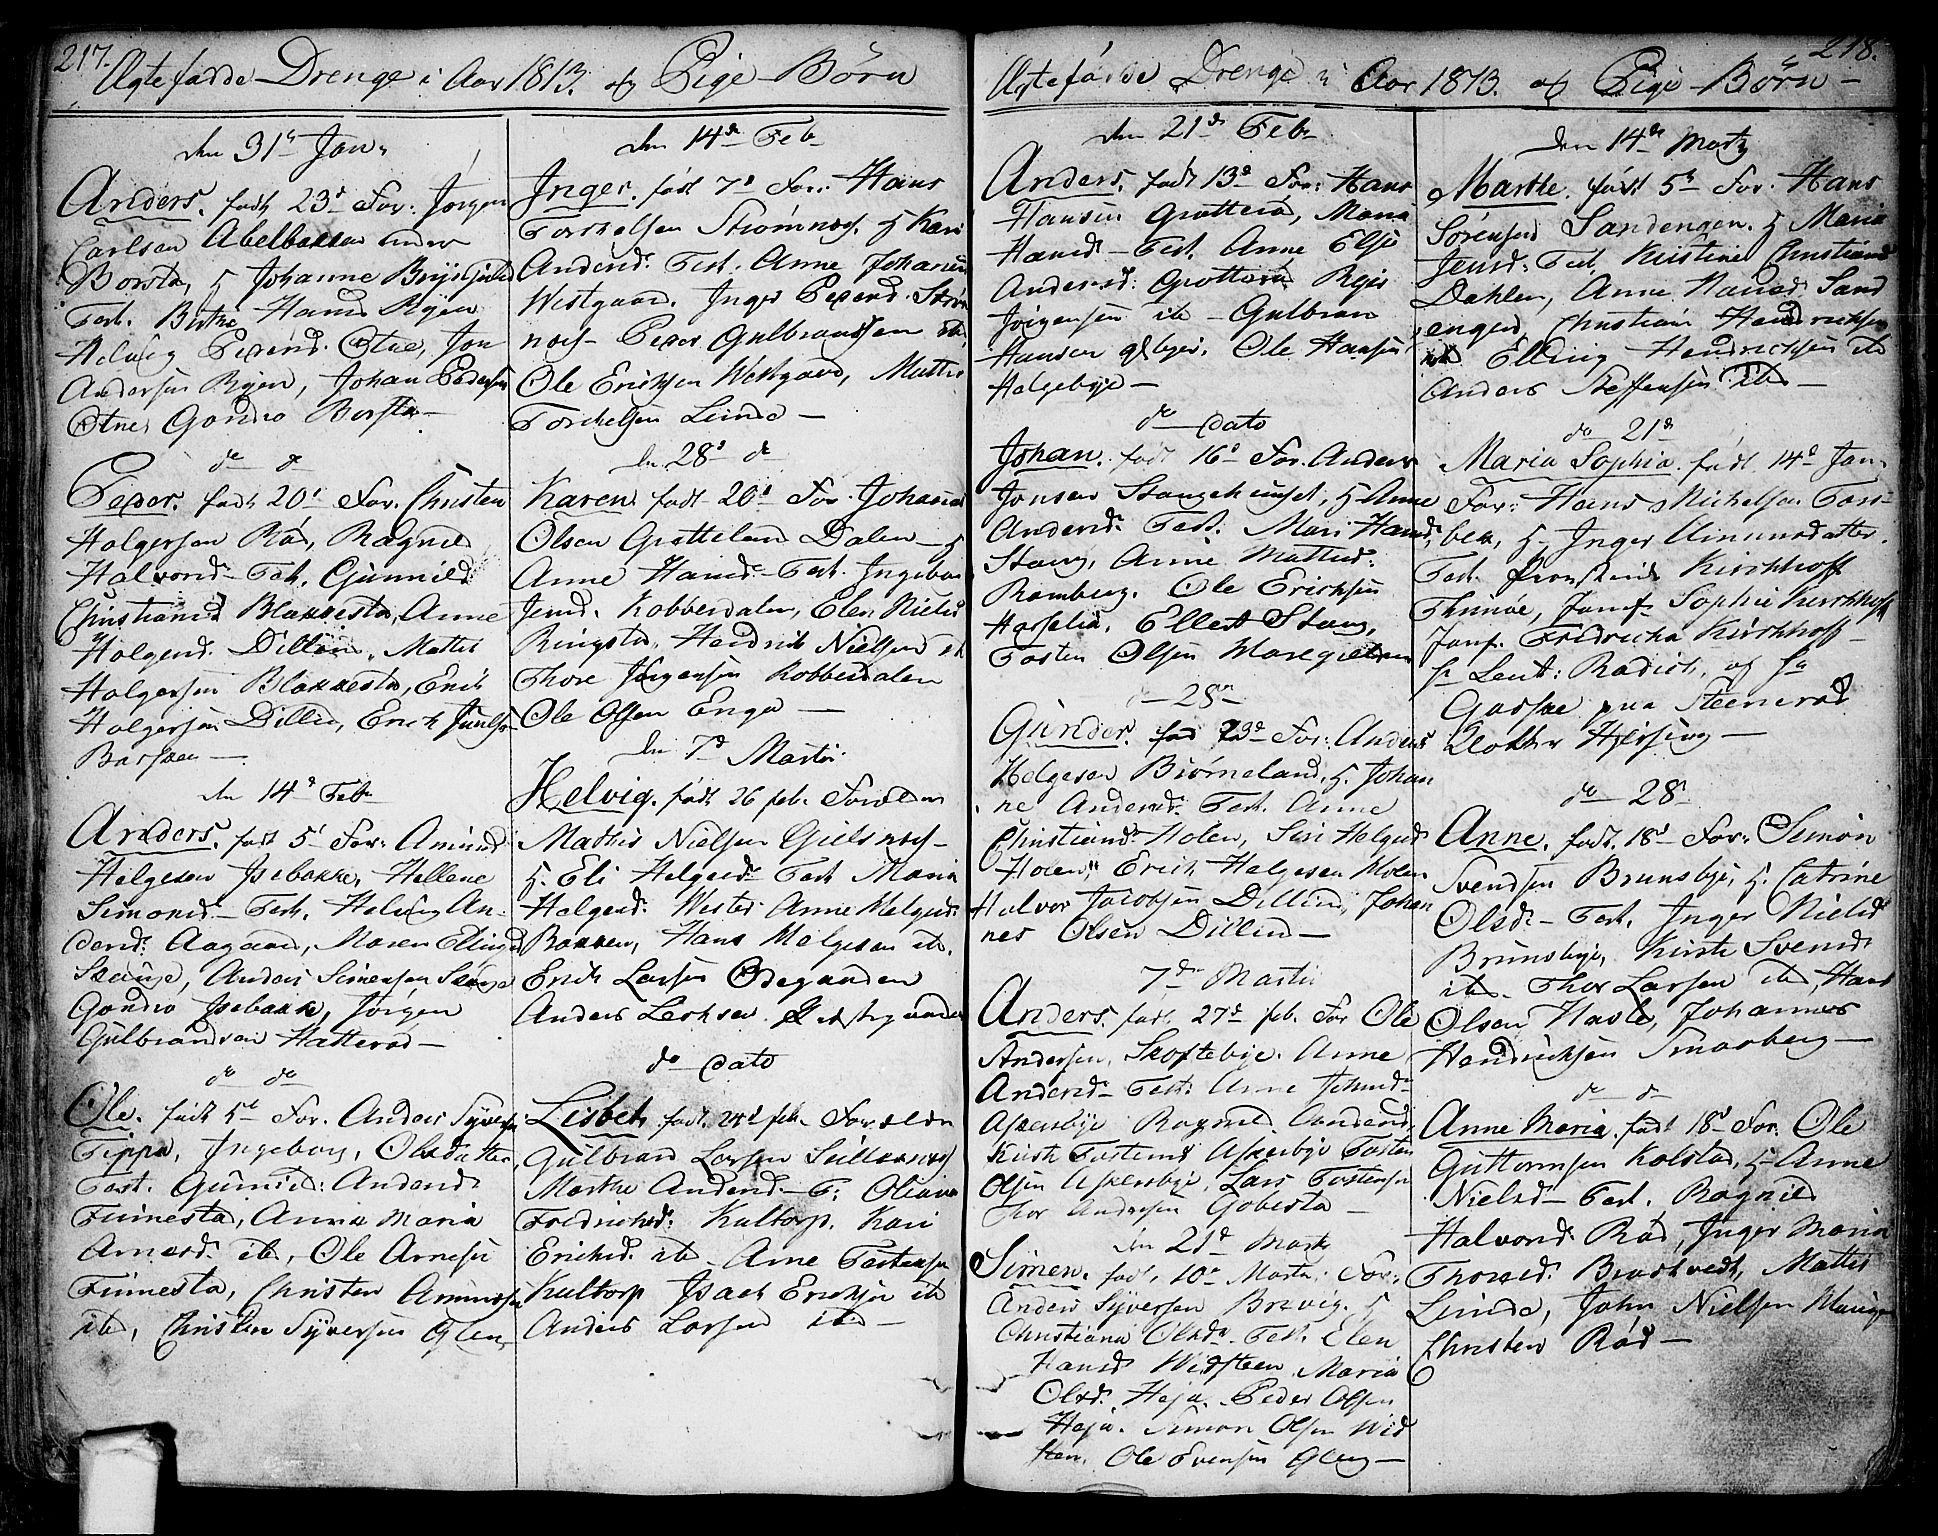 217.
Agtefødde Drenge i Aar 1813. og Pige Børn
den 31t Jan:
Anders. født 23d For: Jørgen
Carlsen Abelbakken under
Borsta, H Johanne
Test. Birthe Hansd Ryen
Helvig Pedersd. Otne, Jon
Andersen Ryen, Johan Pedersen
Otne, Gondro Borsta—
do d
Peder. født 20d For. Christen
Holgersen Rød, Ragnild
Halvorsd— Test. Gunnild
Christiansd Blakkesta, Anne
Holgersd. Dillin, Mattis
Holgersen Blakkesta, Erich
Holgersen Dillin, Erich
den 14d Feb
Anders. født 5t For: Amund
Helgesen Isebakke, Hellene
Simonsd— Test. Helvig An-
dersd: Aagaard, Maren Ellingsd
Skouge, Anders Simensen Skouge
Gondro Isebakke, Jørgen
Gulbrandsen Hatterød—
do do
Ole. født 5t For. Anders Syversen
Tippa, Ingeborg, Olsdatter,
Test. Gunild: Andersd
Fuimesta, Anna Maria
Arnesd. ib, Ole Arnesen
Fuimesta, Christen Amundsen
ib, Christen Syversen Glen,
den 14de Feb
Inger. født 7d For: Hans
Torkelsen Strømnes, H Kari
Andersd: Test. Anne Johansen
Westgaard. Inger Pedersd. Strøm
nes— Peder Gulbrandsen ib.
Ole Erichsen Westgaard, Mattis
Torchelsen Linde—
den 28d d
Karen. født 20d For. Johannes
Olsen Grotteland Dalen— H
Anne Hansd— Test. Ingebor
Jensd. Kobberdalen, Elen Nielsd
Ringsta, Hendrich Nielsen ib
Thore Jørgensen Kobberdalen
Ole Olsen Enga—
den 7d Martii
Helvig. født 26 feb. Forælder
Mathis Nielsen Gielsnes—
H. Eli Helgesd— Test Maria
Helgesd: Wester Anne Helgesd:
Bakken, Hans Helgesen ib.
Erich Larsen Ødegaarden
Anders
do dato
Lisbet. født. 24d feb. Forælder
Gulbrand Larsen
Marthe Andersd— T: Oliana
Fredrichsd: Kultorp. Kari
Erichsd. ib Arne Torstensen
Kultorp Isach Erichsen ib
Anders Larsen ibd—
218.
Agtefødde Drenge i Aar 1813. og Pige Børn—
den 21de Feb
Anders. født 13d For: Hans
Hansen Grotterø, Maria
Hansd— Test. Anne Elsie
Andersd: Grotterø Reier
Jørgensen ib— Gulbran
Hansen Ole Hansen,
Holgebye—
do dato
Johan. født 16d For. Anders
Jonsen Stangehuuset, H Anne
Andersd: Test: Mari Hansd.
Stang, Anne Mattisd:
Ramberg. Ole Erichsen
Ellert Stang,
Tosten Olsen
d— 28de
Gunder. fød 23de For: Anders
Helgesen Biørneland, H. Johan
ne Andersd. Test. Anne
Christiansd Holen, Siri Helgesd
Holen, Erich Helgesen Holen
Halvor Jacobsen Dillin, Johan
nes Olsen Dillin—
7de Martii
Anders. født. 27de feb. For Ole
Andersen, Skoftebye. Anne
Andersd— Test: Anne
Askersbye Ragnild. Andersd.
Kirst: Tostens Askersbye Tosten
Olsen Askersbye, Lars Tostensen
Thor Andersen Gobersta—
den 21d Marts
Simen. født. 10de Martii: For:
Anders Syversen Brevig. H
Christiana Olsd. Test. Elen
Hansd Widsteen Maria
Olsd. Heja. Peder Olsen
Heja. Simon Olsen Wid
sten. Ole Svensen Gleng—
den 14de Marty
Marthe. født 5te For. Hans
Sørensen Sandengen. H Maria
Jensd: Test. Kirstine Christiansd
Dahlen, Anne Hansd Sand
engen, Christian Hendrichsen
ib Elling Hendrichsen ib
Anders Steffensen ib—
do 21de
Maria Sophia. født 14d Jan.
For: Hans Michelsen Tors-
bek, H. Inger Amundsdatter.
Test. Kirchhoff
Thunøe, Jomf. Sophie Kirchhoff
Jomf. Fredricha Kirchhoff—
hr Leut: Radich, og hr
Garske paa Steenerød
Klokker Hersing—
do— 28
Anne. født. 18d For: Simon
Svendsen Brunsbye, H. Catrine
Olsd— Test. Inger Nielsd
Brunsbye, Kirste Svensd
ibd. Thor Larsen ibd, Hans
Olsen Hasle, Johannes
Hendrichsen Smaaberg—
do d
Anne Maria. født 18d For. Ole
Guttormsen Kolstad, H. Anne
Nielsd— Test. Ragnild
Halvorsd. Rød, Inger Maria
Thoresd. Bradtvedt, Mattis
Linde, John Nielsen
Christen Rød—